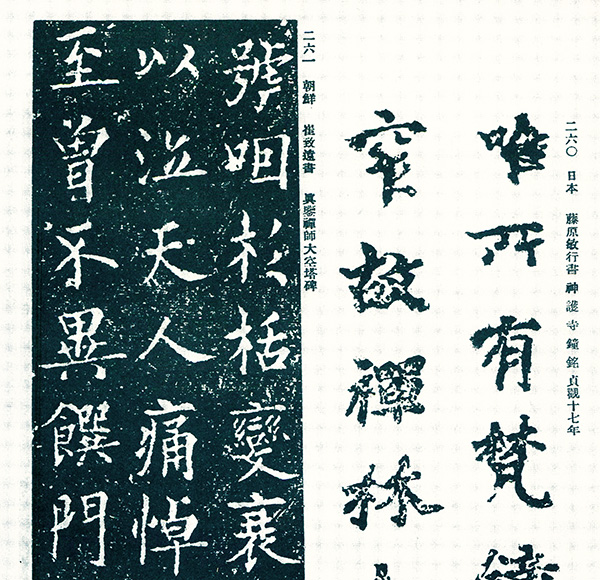 二六〇 日本 藤原敏行書 神護寺鐘銘 貞觀十七年
唯所有梵
窄故禪林
二六一 朝鮮 崔致遠書 眞鑒禪師大空塔碑
號咽於栝變衰
以泣天人痛悼
至曾不異饌門